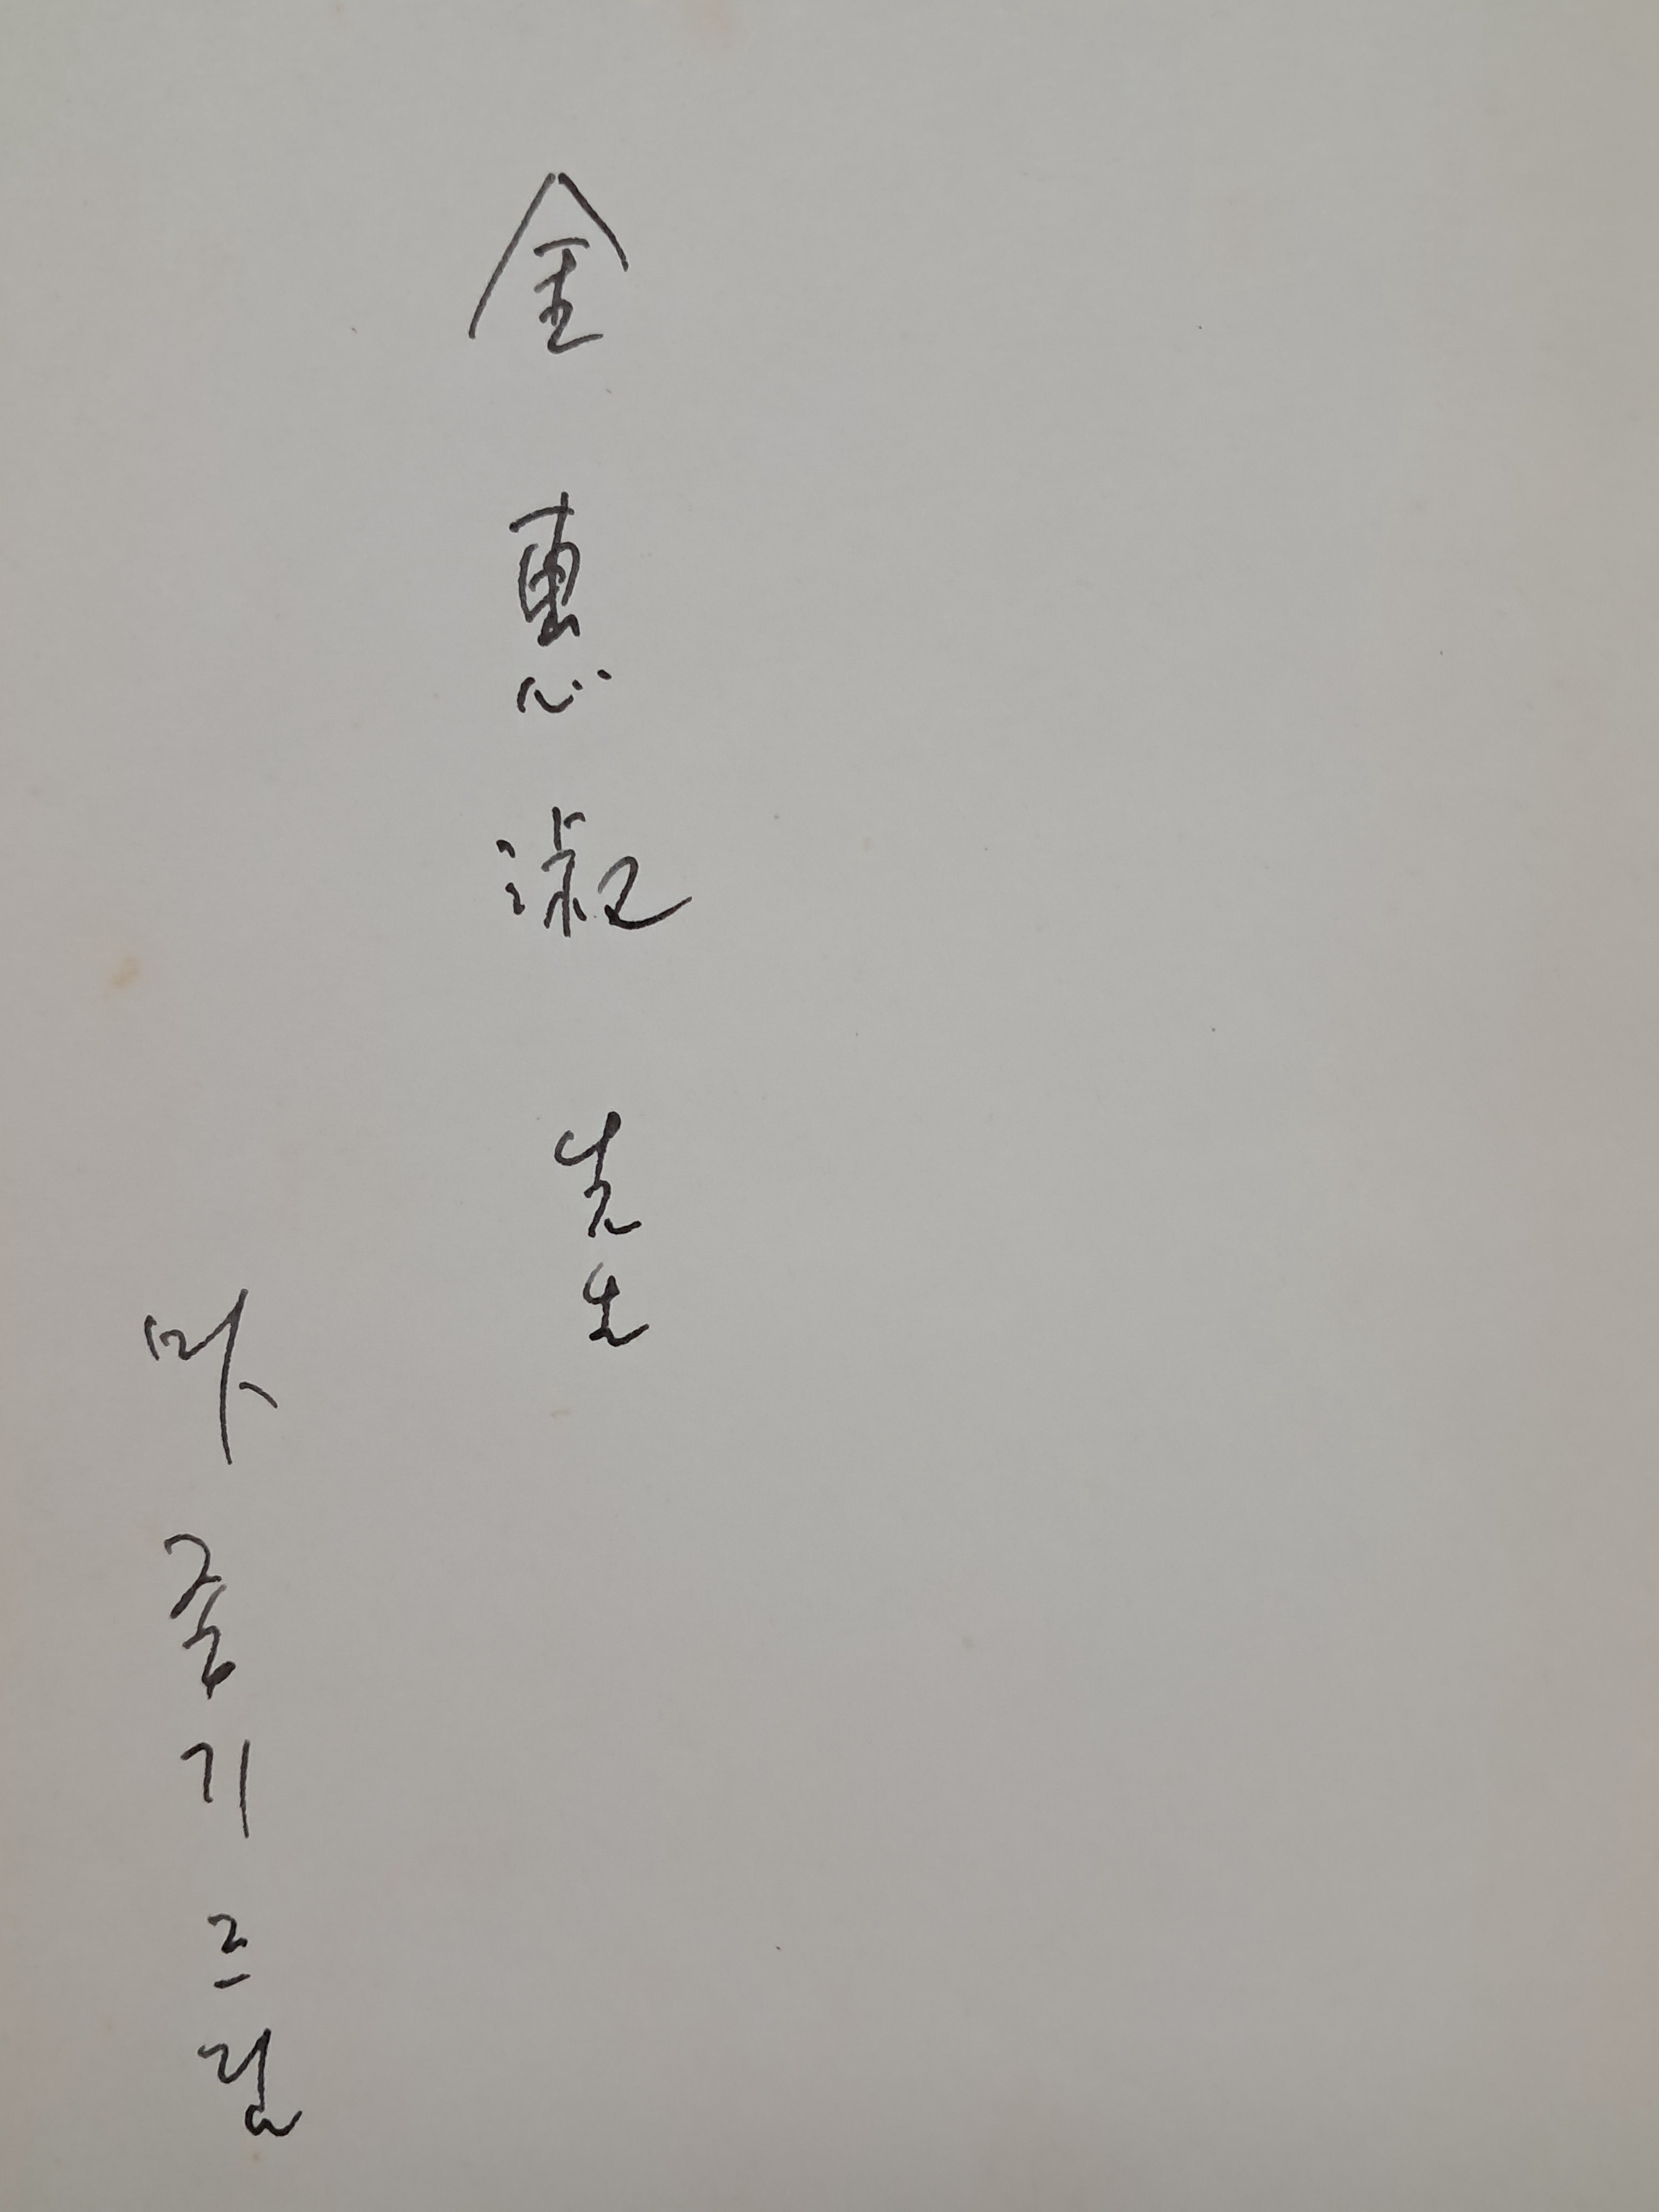 金惠淑 先生
마종기 드림